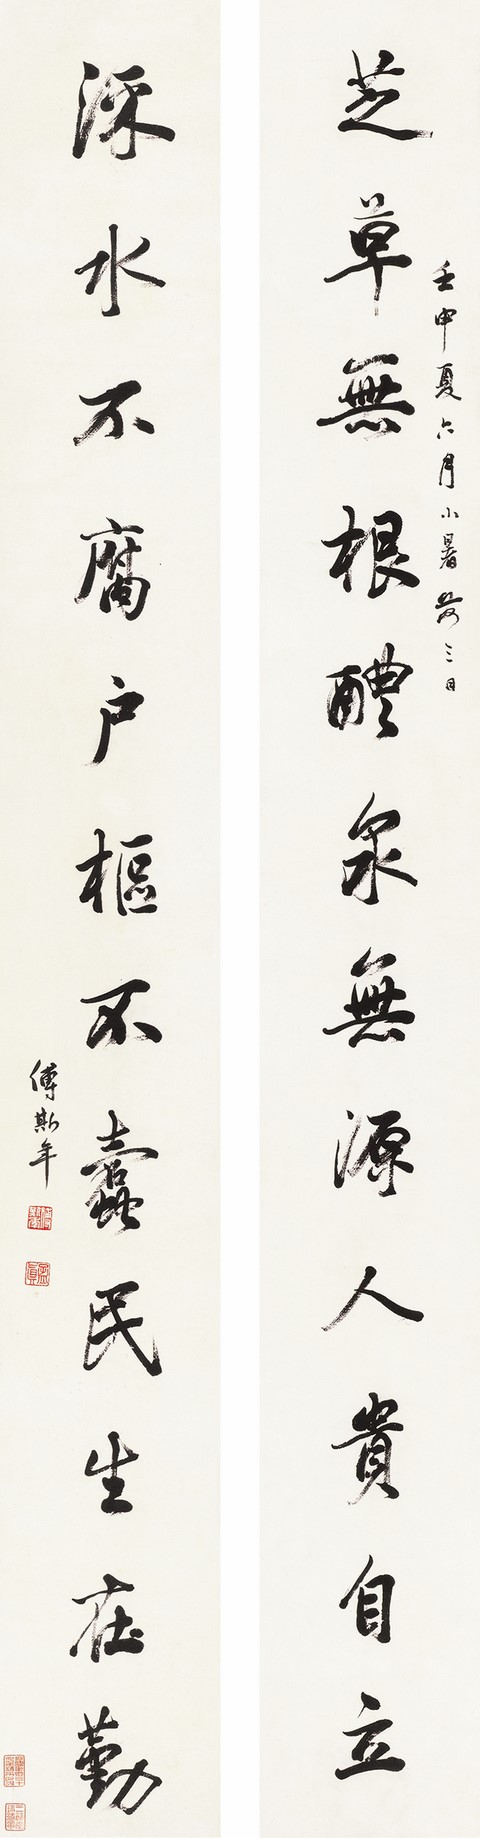 壬申夏六月小暑後三日
芝草無根醴泉無源人貴自立
流水不腐户樞不蠹民生在勤
傅斯年
孟真